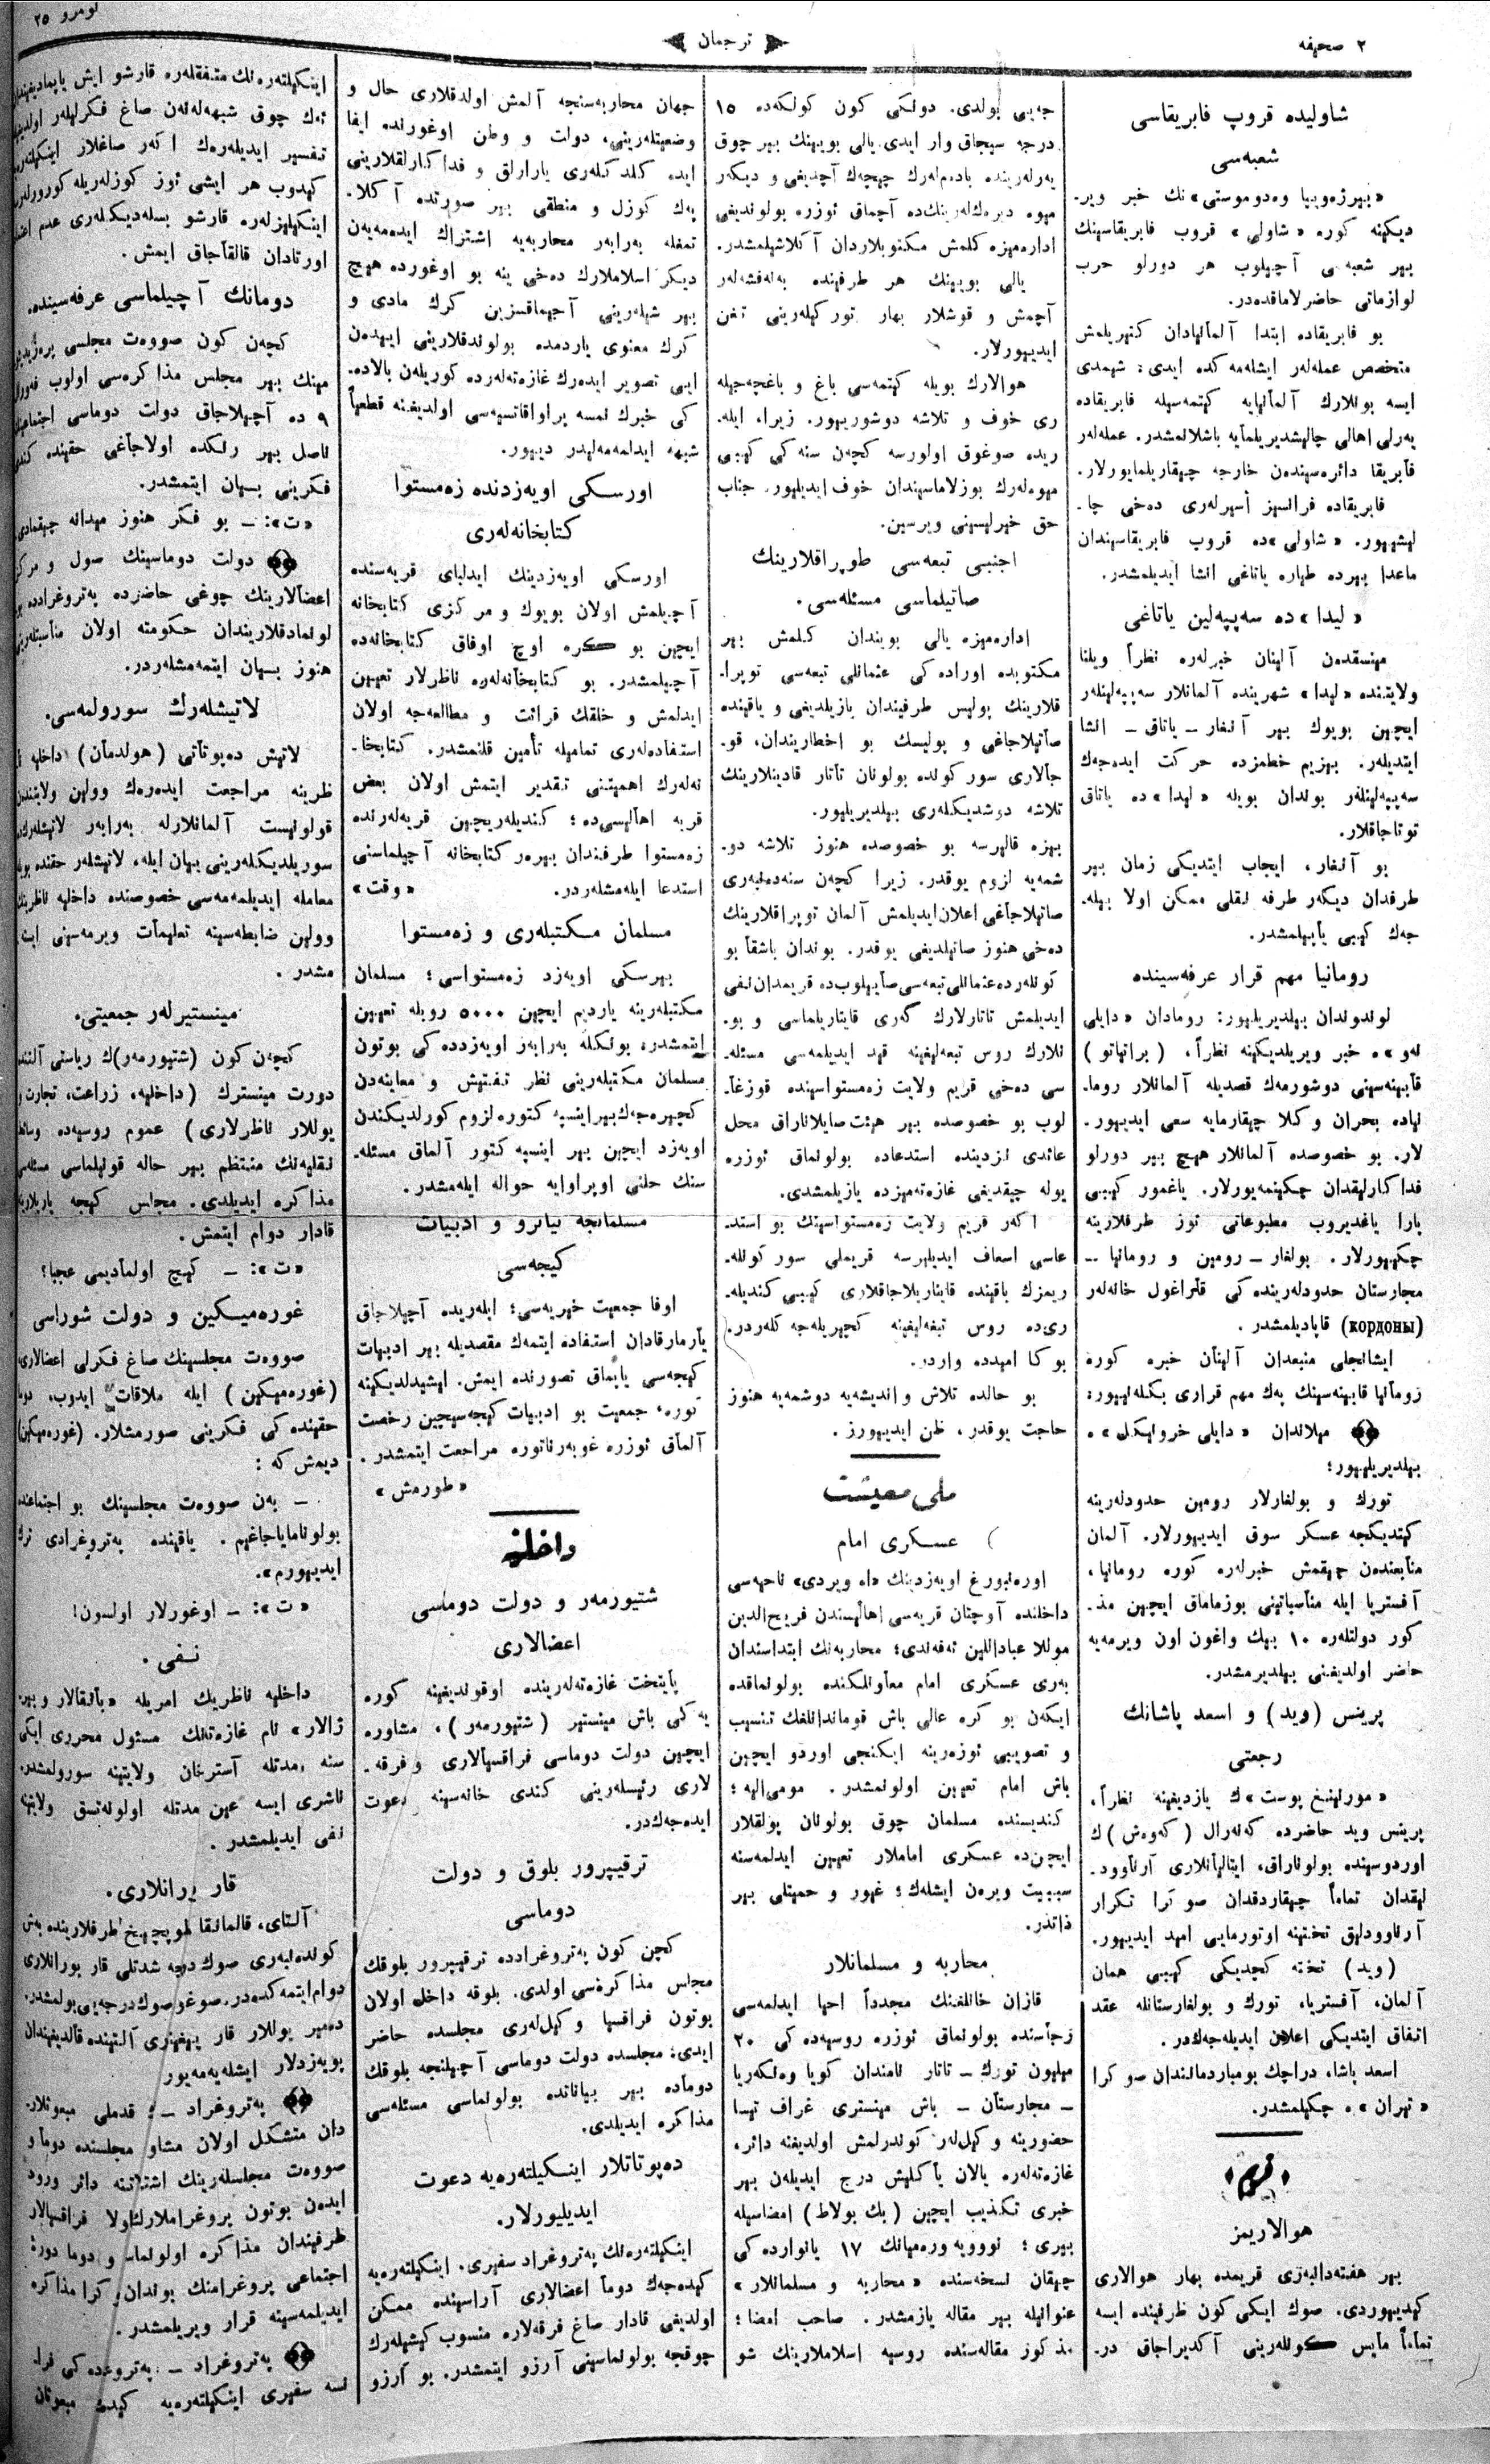 ٢ صحیفه
ترجمان
نومرو ٢٥
شاولیده قروپ فابریقاسی
شعبه‌سی
«بیرژه‌وییا وه‌دوموستی»نك خبر ویر-
دیكینه كوره «شاولی» قروپ فابریقاسینك
بیر شعبه‌سی آچیلوب هر دورلو حرب
لوازماتی حاضرلاماقده‌در.
بو فابریقاده ابتدا آلمانیادان كتیریلمش
متخصص عمله‌لر ایشله‌مه كده ایدی؛ شیمدی
ایسه بونلارك آلمانیایه كیتمه‌سیله فابریقاده
یه‌رلی اهالی چالیشدیریلمایه باشلانمشدر. عمله‌لر
فابریقا دائره‌سیندن خارجه چیقاریلمایورلار.
فابریقاده فرانسیز أسیرله‌ری ده‌خی چا-
لیشیور. «شاولی»ده قروپ فابریقاسیندان
ماعدا بیرده طیاره یاتاغی انشا ایدیلمشدر.
«لیدا»ده سه‌پپه‌لین یاتاغی
مینسقدن آلینان خبرله‌ره نظراً ویلنا
ولایتنده «لیدا» شهرینده آلمانلار سه‌پپه‌لینلر
ایچین بویوك بیر آنغار – یاتاق – انشا
ایتدیله‌ر. بیزیم خطمزده حركت ایده‌جه‌ك
سه‌پپه‌لینلر بوندان بویله «لیدا»ده یاتاق
توتاجاقلار.
بو آنغار، ایجاب ایتدیكی زمان بیر
طرفدان دیكه‌ر طرفه نقلی ممكن اولا بیله-
جه‌ك كیبی یاپیلمشدر.
رومانیا مهم قرار عرفه‌سینده
لوندوندان بیلدیریلیور: رومادان «دایلی
نه‌و»ه خبر ویریلدیكینه نظراً، (براتیانو)
قابینه‌سینی دوشورمه‌ك قصدیله آلمانلار روما-
نیاده بحران وكلا چیقارمایه سعی ایدییور-
لار. بو خصوصده آلمانلار هیچ بیر دورلو
فداكارلیقدان چكینمه‌یورلار. یاغمور كیبی
پارا یاغدیروب مطبوعاتی ئوز طرفلارینه
چكییورلار. بولغار – رومین و رومانیا –
مجارستان حدودله‌رینده كی قاراغول خانه‌له‌ر
(кордоны) قاپادیلمشدر.
ایشانجلی منبعدان آلینان خبره كوره
رومانیا قابینه‌سینك په‌ك مهم قراری بكله‌نییور؛
میلاندان «دایلی خرونیكل»ه
بیلدیریلییور؛
تورك و بولغارلار رومین حدودله‌رینه
كیتدیكجه عسكر سوق ایدییورلار. آلمان
منابعندن چیقمش خبرله‌ره كوره رومانیا،
آفستریا ایله مناسباتینی بوزماماق ایچین مذ-
كور دولتله‌ره ١٠ بیك واغون اون ویرمه‌یه
حاضر اولدیغنی بیلدیرمشدر.
پرینس (وید) و اسعد پاشانك
رجعتی
«مورنینغ پوست»ك یازدیغینه نظراً،
پرینس وید حاضرده كه‌نه‌رال (كه‌وه‌ش)ك
اوردوسینده بولوناراق، ایتالیانلاری آرناوود-
لیقدان تماماً چیقاردقدان صوكرا تكرار
آرناوودلیق تختینه اوتورمایی امید ایدییور.
(وید) تخته كچدیكی كیبی همان
آلمان، آفستریا، تورك و بولغارستانله عقد
اتفاق ایتدیكی اعلان ایدیله‌جه‌ك‌در.
اسعد پاشا، دراچك بومباردمانندان صوكرا
«تیران»ه چكیلمشدر.
قریم
هوالاریمز
بیر هفته‌دانبه‌ری قریمده بهار هوالاری
كیدییوردی. صوك ایكی كون ظرفینده ایسه
تماماً مایس كونله‌رینی آكدیراجاق در-
جه‌یی بولدی. دونكی كون كولكه‌ده ١٥
درجه سیجاق وار ایدی. یالی بویینك بیر چوق
یه‌رله‌رینده باده‌مله‌رك چیچه‌ك آچدیغی و دیكه‌ر
میوه دیره‌كله‌رینك‌ده آچماق ئوزره بولوندیغی
اداره‌میزه كلمش مكتوبلاردان آكلاشیلمشدر.
یالی بویینك هر طرفینده به‌نه‌فشه‌له‌ر
آچمش و قوشلار بهار توركیله‌رینی تغن
ایدییورلار.
هوالارك بویله كیتمه‌سی باغ و باغچه‌جیله
ری خوف و تلاشه دوشوریور. زیرا، ایله-
ریده صوغوق اولورسه كچه‌ن سنه‌كی كیبی
میوه‌له‌رك بوزلاماسیندان خوف ایدیلیور. جناب
حق خیرلیسینی ویرسین.
اجنبی تبعه‌سی طوپراقلارینك
صاتیلماسی مسئله‌سی.
اداره‌میزه یالی بویندان كلمش بیر
مكتوبده اوراده‌كی عثمانلی تبعه‌سی توپرا-
قلارینك پولیس طرفیندان یازیلدیغی و یاقینده
صاتیلاجاغی و پولیسك بو اخطاریندان، قو-
جالاری سوركونده بولونان تاتار قادینلارینك
تلاشه دوشدیكله‌ری بیلدیریلیور.
بیزه قالیرسه بو خصوصده هنوز تلاشه دو-
شمه‌یه لزوم یوقدر. زیرا كچه‌ن سنه‌ده‌نبه‌ری
صاتیلاجاغی اعلان ایدیلمش آلمان توپراقلارینك
ده‌خی هنوز صاتیلدیغی یوقدر. بوندان باشقا بو
كونله‌رده عثمانلی تبعه‌سی صاییلوب‌ده قریمدان نفی
ایدیلمش تاتارلارك گه‌ری قایتاریلماسی و بو-
نلارك روس تبعه‌لیغینه قید ایدیلمه‌سی مسئله-
سی ده‌خی قریم ولایت زه‌مستواسینده قوزغا-
لوب بو خصوصده بیر هیئت صایلاناراق محل
عائدی نزدینده استدعاده بولونماق ئوزره
یوله چیقدیغی غازه‌ته‌میزده یازیلمشدی.
اكه‌ر قریم ولایت زه‌مستواسینك بو استد-
عاسی اسعاف ایدیلیرسه قریملی سوركونله-
ریمزك یاقینده قایتاریلاجاقلاری كیبی كندیله-
ری‌ده روس تبعه‌لیغینه كچیریله‌جه كله‌ردر.
بوكا امیدده واردر.
بو حالده تلاش و اندیشه‌یه دوشمه‌یه هنوز
حاجت یوقدر، ظن ایدییورز.
ملی معیشت
عسكری امام
اوره‌نبورغ اویه‌زدینك «اه ویردی» ناحیه‌سی
داخلنده آوچتان قریه‌سی اهالیسندن فریح‌الدین
موللا عباداللین ئه‌فه‌ندی؛ محاربه‌نك ابتداسندان
به‌ری عسكری امام معاونلكنده بولونماقده
ایكه‌ن بو كره عالی باش قوماندانلغك تنسیب
و تصویبی ئوزه‌رینه ایكنجی اوردو ایچین
باش امام تعیین اولونمشدر. مومی‌الیه؛
كندیسنده مسلمان چوق بولونان پولقلار
ایچن‌ده عسكری اماملار تعیین ایدلمه‌سنه
سببیت ویره‌ن ایشله‌ك؛ غیور و حمیتلی بیر
ذاتدر.
محاربه و مسلمانلار
قازان خانلغنك مجدداً احیا ایدلمه‌سی
رجاسنده بولونماق ئوزره روسیه‌ده كی ٢٠
میلیون تورك – تاتار نامندان كویا وه‌نكه‌ریا
– مجارستان – باش مینستری غراف تیسا
حضورینه وكیل‌لر كوندرلمش اولدیغنه دائر،
غازه‌ته‌له‌ره یالان یاكلیش درج ایدیله‌ن بیر
خبری تكذیب ایچین (بك بولاط) امضاسیله
بیری؛ نوویه وره‌میانك ١٧ یانوارده كی
چیقان نسخه‌سنده «محاربه و مسلمانلار»
عنوانیله بیر مقاله یازمشدر. صاحب امضا؛
مذكور مقاله‌سنده روسیه اسلاملارینك شو
جهان محاربه‌سنجه آلمش اولدقلاری حال و
وضعیتله‌رینی، دولت و وطن اوغورنده ایفا
ایده كلدكله‌ری یارارلق و فداكارلقلارینی
په‌ك كوزل و منطقی بیر صورتده آكلا-
تمغله به‌رابه‌ر محاربه‌یه اشتراك ایده‌مه‌یه‌ن
دیكر اسلاملارك ده‌خی ینه بو اوغورده هیچ
بیر شیله‌رینی آجیماقسزین كرك مادی و
كرك معنوی یاردمده بولوندقلارینی ایییدن
ایی تصویر ایده‌رك غازه‌ته‌له‌رده كوریله‌ن بالاده-
كی خبرك نمسه پراواقاتسیه‌سی اولدیغنه قطعیاً
شبهه ایدلمه‌مه‌لیدر دییور.
اورسكی اویه‌زدنده زه‌مستوا
كتابخانه‌له‌ری
اورسكی اویه‌زدینك ایدلبای قریه‌سنده
آچیلمش اولان بویوك و مركزی كتابخانه
ایچین بو كره اوچ اوفاق كتابخانه‌ده
آچیلمشدر. بو كتابخانه‌له‌ره ناظرلار تعیین
ایدلمش و خلقك قرائت و مطالعه‌جه اولان
استفاده‌له‌ری تمامیله تأمین قلنمشدر. كتابخا-
نه‌له‌رك اهمیتنی تقدیر ایتمش اولان بعض
قریه اهالیسی‌ده؛ كندیله‌ریچین قریه‌له‌رنده
زه‌مستوا طرفندان بیره‌ر كتابخانه آچیلماسنی
استدعا ایله‌مشله‌ردر. «وقت»
مسلمان مكتبله‌ری و زه‌مستوا
بیرسكی اویه‌زد زه‌مستواسی؛ مسلمان
مكتبله‌رینه یاردیم ایچین ٥٠٠٠ روبله تعیین
ایتمشدر؛ بونكله به‌رابه‌ر اویه‌زدده كی بوتون
مسلمان مكتبله‌رینی نظر تفتیش و معاینه‌دن
كچیره‌جه‌ك بیر اینسپه كتوره لزوم كورلدیكندن
اویه‌زد ایچین بیر اینسپه كتور آلماق مسئله-
سنك حلنی اوپراوایه حواله ایله‌مشدر.
مسلمانجه تیاترو و ادبیات
كیجه‌سی
اوفا جمعیت خیریه‌سی؛ ایله‌ریده آچیلاجاق
یارمارقادان استفاده ایتمه‌ك مقصدیله بیر ادبیات
كیجه‌سی یاپماق تصورنده ایمش. ایشیدلدیكینه
كوره، جمعیت بو ادبیات كیجه‌سیچین رخصت
آلماق ئوزره غوبه‌رناتوره مراجعت ایتمشدر.
«طورمش»
داخلیه
شتیورمه‌ر و دولت دوماسی
اعضالاری
پایتخت غازه‌ته‌له‌رینده اوقوندیغینه كوره
یه‌كی باش مینستیر (شتیورمه‌ر)، مشاوره
ایچین دولت دوماسی فراقسیالاری و فرقه-
لاری رئیسله‌رینی كندی خانه‌سینه دعوت
ایده‌جه‌ك‌در.
ترقیپرور بلوق و دولت
دوماسی
كچن كون په‌تروغرادده ترقیپرور بلوقك
مجلس مذاكره‌سی اولدی. بلوقه داخل اولان
بوتون فراقسیا وكیل‌له‌ری مجلسده حاضر
ایدی؛ مجلسده دولت دوماسی آچیلنجه بلوقك
دوماده بیر بیاناتده بولونماسی مسئله‌سی
مذاكره ایدیلدی.
ده‌پوتاتلار اینكیلتره‌یه دعوت
ایدیلیورلار.
اینكیلتره‌نك په‌تروغراد سفیری، اینكیلتره‌یه
كیده‌جه‌ك دوما اعضالاری آراسینده ممكن
اولدیغی قادار صاغ فرقه‌لاره منسوب كیشیله‌رك
چوقجه بولونماسینی آرزو ایتمشدر. بو آرزو
اینكیلتره‌نك متفقله‌ره قارشو ایش یاپمادیغیندا
ئه‌ك چوق شبهه‌له‌نه‌ن صاغ فكرلیله‌ر
تفسیر ایدیله‌رك اكه‌ر صاغلار
كیدوب هر ایشی ئوز كوزله‌ریله كورورله‌ر
اینكیلیزله‌ره قارشو بسله‌دیكله‌ری عدم
اورتادان قالقاجاق ایمش.
دومانك آچیلماسی عرفه‌سینده.
كچه‌ن كون صووه‌ت مجلسی
مینك بیر مجلس مذاكره‌سی اولوب
٩ ده آچیلاجاق دولت دوماسی
ناصل بیر رنكده اولاجاغی حقینده
فكرینی بیان ایتمشدر.
«ت»: – بو فكر هنوز میدانه چیقمادی.
دولت دوماسینك صول و مركز
اعضالارینك چوغی حاضرده په‌تروغرادده بو
لونمادقلاریندان حكومته اولان مناسبتله‌رینی
هنوز بیان ایتمه‌مشله‌ردر.
لاتیشله‌رك سورولمه‌سی.
لاتیش ده‌پوتاتی (هولدمان) داخلیه نا
ظرینه مراجعت ایده‌ره‌ك وولین ولایتندن
قولونیست آلمانلارله به‌رابه‌ر لاتیشله‌رك
سوریلدیكله‌رینی بیان ایله، لاتیشله‌ر حقنده بویله
معامله ایدیلمه‌مه‌سی خصوصنده داخلیه ناظرینك
وولین ضابطه‌سینه تعلیمات ویرمه‌سینی ایت-
مشدر.
مینستیرله‌ر جمعیتی.
كچه‌ن كون (شتیورمه‌ر)ك ریاستی آلتنده
دورت مینسترك (داخلیه، زراعت، تجارت و
یوللار ناظرلاری) عموم روسیه‌ده
نقلیه‌نك منتظم بیر حاله قونیلماسی مسئله‌سی
مذاكره ایدیلدی. مجلس كیجه یاریلارینه
قادار دوام ایتمش.
«ت»: – كیچ اولمادیمی عجبا؟
غوره‌میكین و دولت شوراسی
صووه‌ت مجلسینك صاغ فكرلی اعضالاری
(غوره‌میكین) ایله ملاقات ایدوب، دوما
حقینده كی فكرینی صورمشلار. (غوره‌میكین)
دیمش كه:
– به‌ن صووه‌ت مجلسینك بو اجتماعنده
بولونامایاجاغیم. یاقینده په‌تروغرادی ترك
ایدییورم».
«ت»: – اوغورلار اولسون!
نفی.
داخلیه ناظرینك امریله
ژالار» نام غازه‌ته‌نك مسئول محرری ایكی
سنه مدتله آسترخان ولایتینه سورولمشدر.
ناشری ایسه عین مدتله اولونه‌تسق ولایتینه
نفی ایدیلمشدر.
قار بورانلاری.
آلتای، قالمانقا طرفلارینده به‌ش
كونده‌نبه‌ری صوك درجه شدتلی قار بورانلاری
دوام ایتمه كده‌در. صوغوق صوك درجه‌یی بولمشدر.
ده‌میر یوللار قار ییغینلری آلتینده قالدیغیندان
پویه‌زدلار ایشله‌یه‌مه‌یور
په‌تروغراد –؛ قدملی مبعوثلار-
دان متشكل اولان مشاور مجلسنده دوما و
صووه‌ت مجلسله‌رینك اشتاتنه دائر ورود
ایده‌ن بوتون پروغراملارك اولا فراقسیالار
طرفیندان مذاكره اولونماسی و دوما دوره
اجتماعی پروغرامنك بوندان صوكرا مذاكره
ایدیلمه‌سینه قرار ویریلمشدر.
په‌تروغراد –. په‌تروغرادده كی فرا-
نسه سفیری اینكیلتره‌یه كیده‌ن مبعوثان